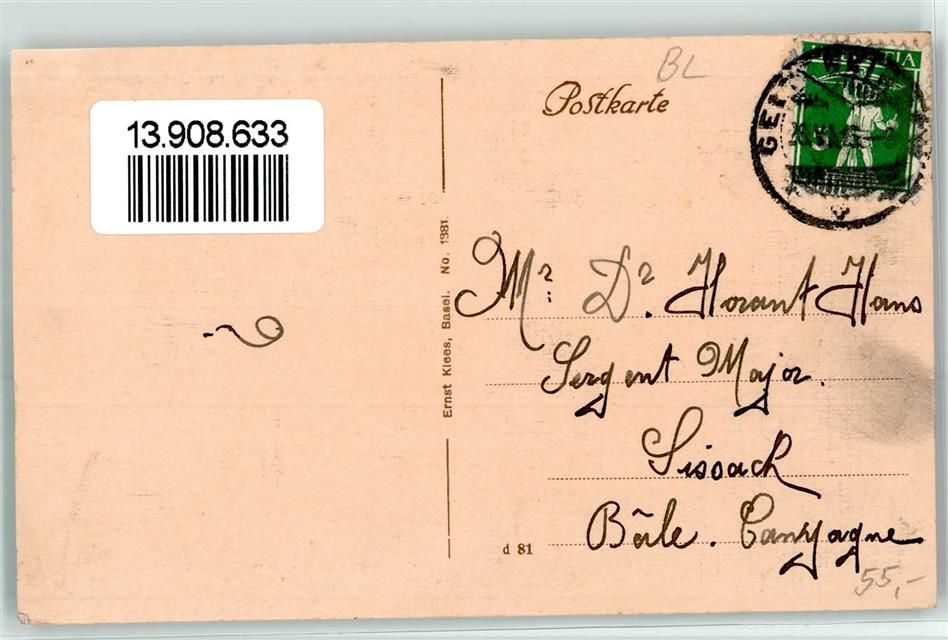 BL
Postkarte
HELVETIA
13.908.633
Mr. Dr. Horant Hans
Sergent Major.
Sissach
Bâle. Campagne
?
Ernst Klees, Basel. No. 1381.
d 81
55,-